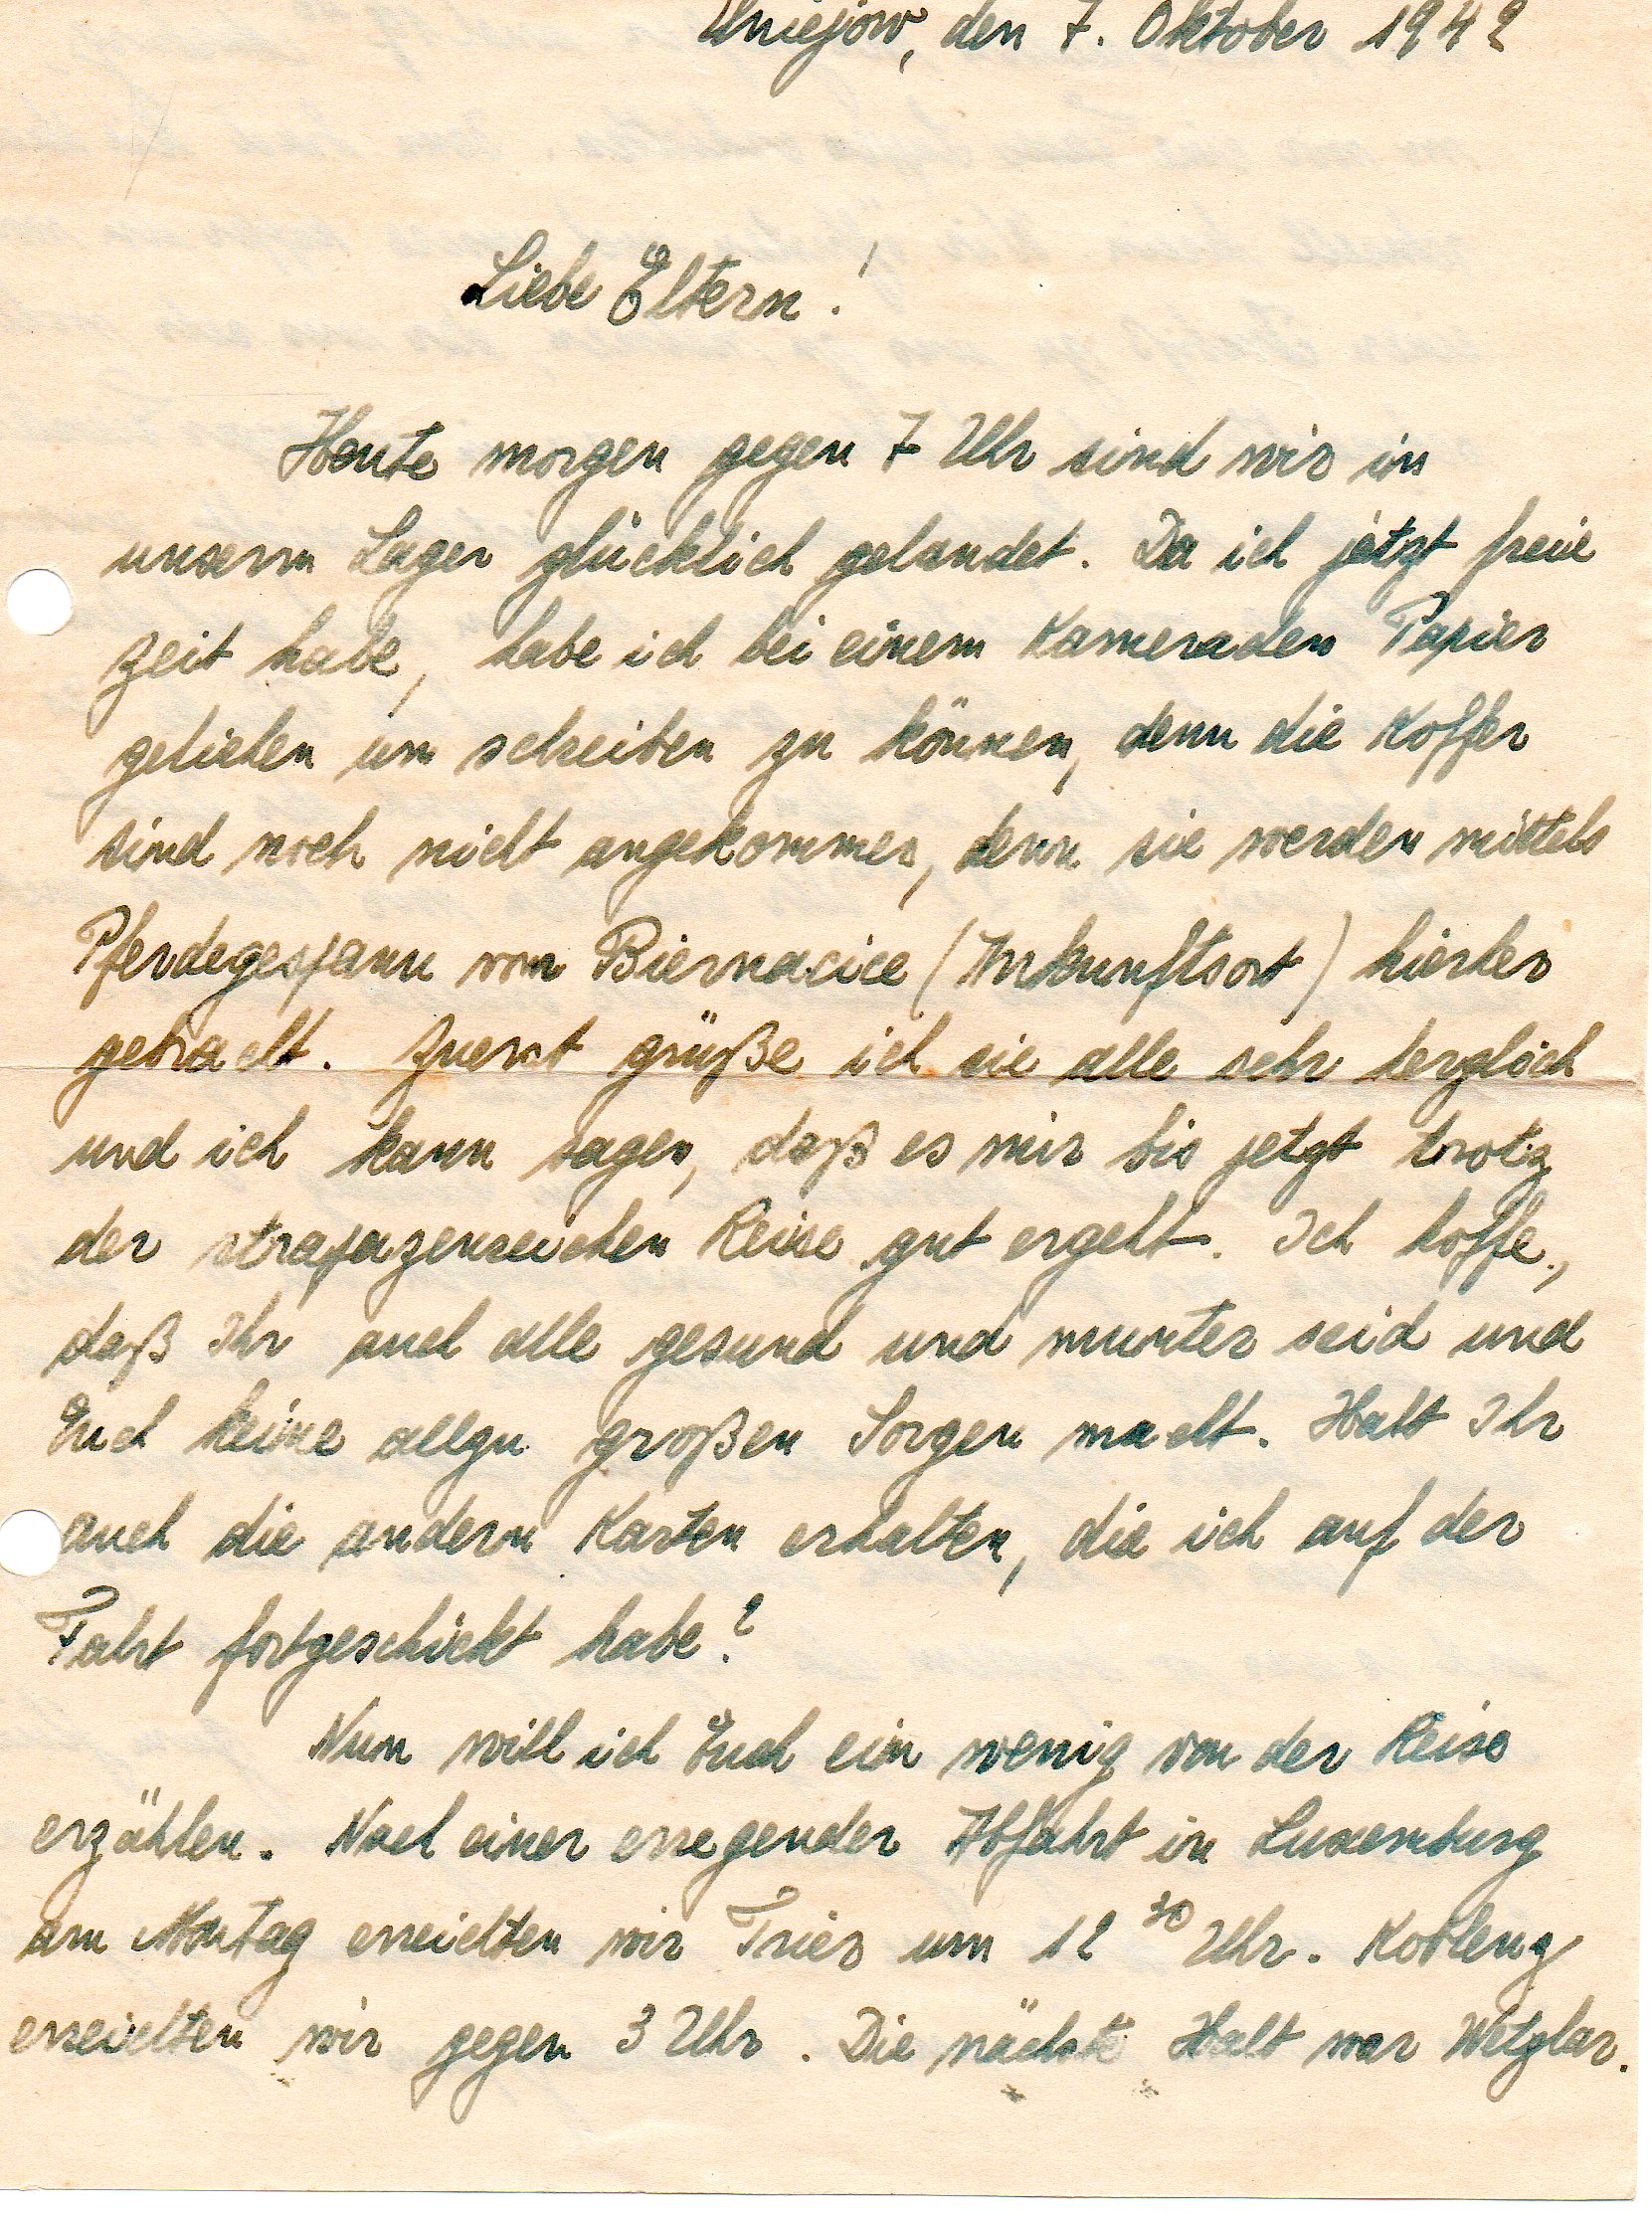 Uniejow, den 7. Oktober 1942
Liebe Eltern!
Heute morgen gegen 7 Uhr sind wir in
unserm Lager glücklich gelandet. Da ich jetzt freie
Zeit habe, habe ich bei einem Kameraden Papier
geliehen um schreiben zu können, denn die Koffer
sind noch nicht angekommen, denn sie werden mittels
Pferdegespann von Biernacice (Ankunftsort) hierher
gebracht. Zuerst grüße ich sie alle sehr herzlich
und ich kann sagen, daß es mir bis jetzt trotz
der strapazenreichen Reise gut ergeht. Ich hoffe,
daß Ihr auch alle gesund und munter seid und
Euch keine allzu großen Sorgen macht. Habt Ihr
auch die andern Karten erhalten, die ich auf der
Fahrt fortgeschickt habe?
Nun will ich Euch ein wenig von der Reise
erzählen. Nach einer erregender Abfahrt in Luxemburg
am Montag erreichten wir Trier um 12 30 Uhr. Koblenz
erreichten wir gegen 3 Uhr. Die nächste Halt war Wetzlar.